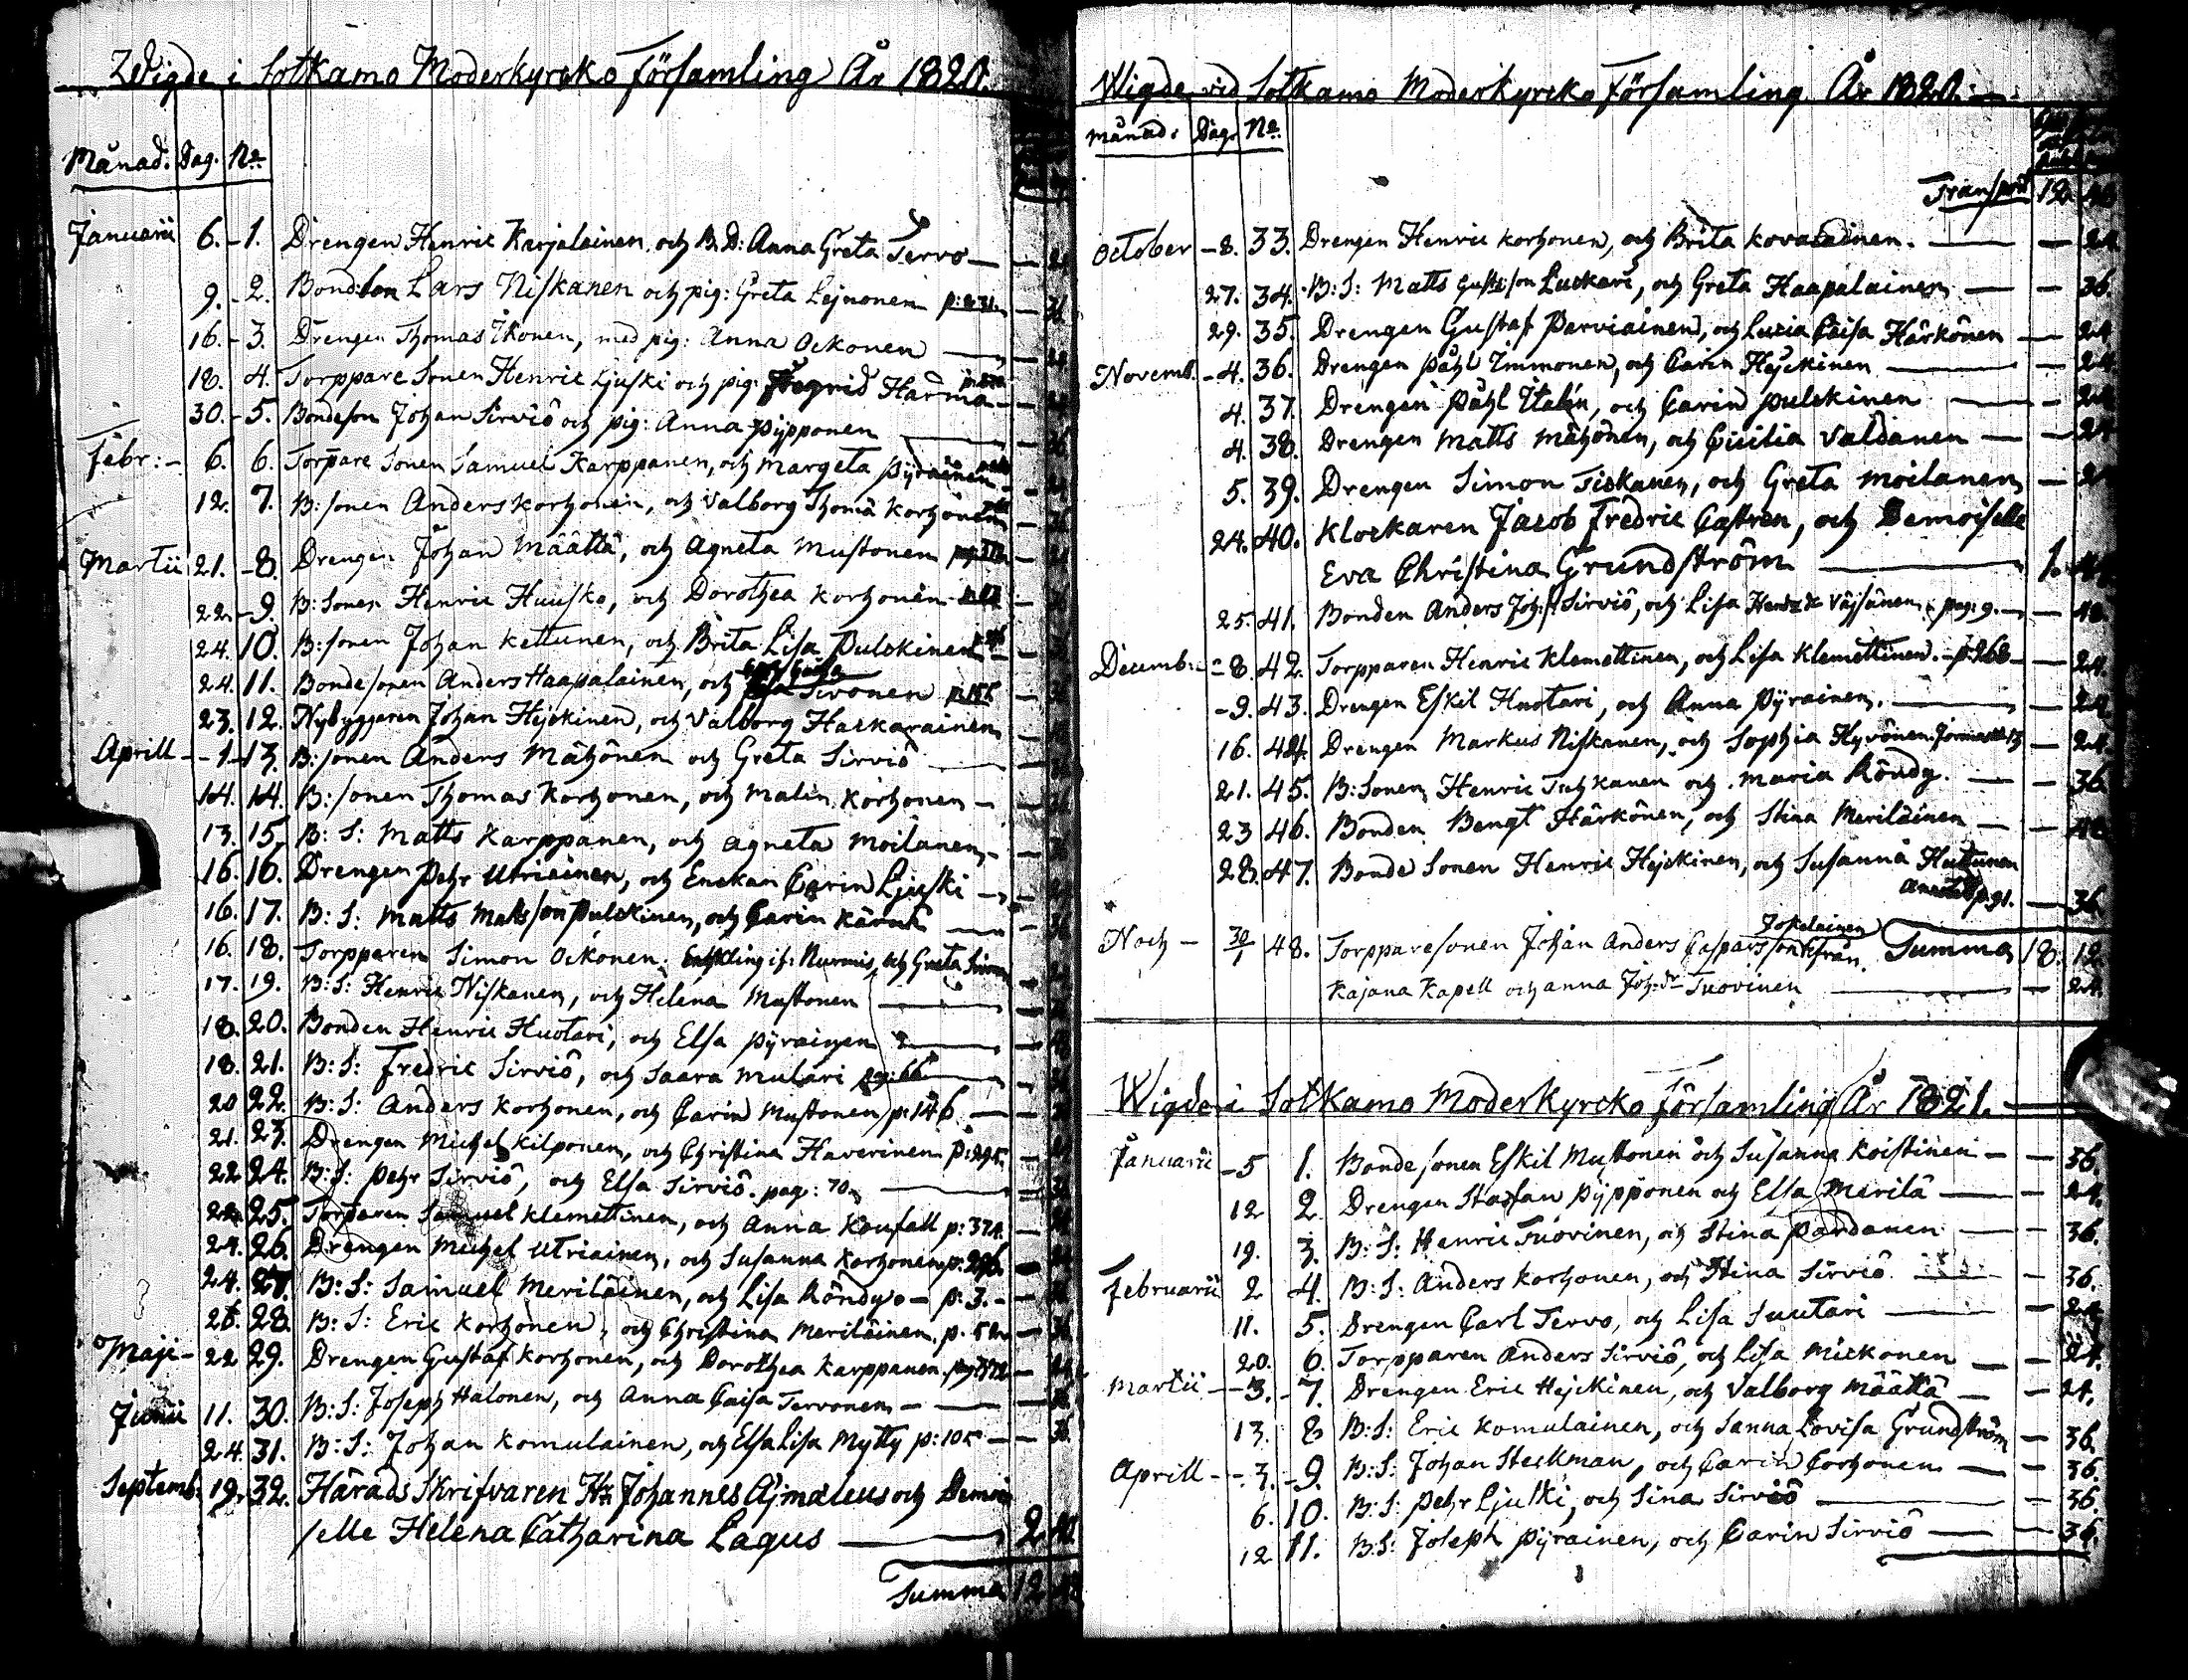 Wigde i Sotkamo Moderkyrcko Församling År 1820.
Månad. Dag. No.
Januarii 6. 1. Drengen Henric Karjalainen och B.D: Anna Greta Tervo — 24
9. 2. Bondeson Lars Niskanen och pig: Greta Lejnonen p: 231. — 36
16. 3. Drengen Thomas Ikonen, med pig: Anna Ockonen — 24
18. 4. Torppare Sonen Henric Ljuski och pig: Ingrid Harma —
30. 5. Bondeson Johan Sirviö och pig: Anna Pypponen — 36
Febr: 6. 6. Torpare Sonen Samuel Karppanen, och Margeta Pyräinen — 24
12. 7. B: sonen Anders Korhonen, och Valborg Thomä Korhonen — 36
Martii 21. 8. Drengen Johan Määttä, och Agneta Mustonen — 24
22. 9. B: Sonen Henric Huusko, och Dorothea Korhonen — 36
24. 10. B: sonen Johan Kettunen, och Brita Lisa Pulckinen — 36
24. 11. Bondesonen Anders Haapalainen, och Sironen p: 156 — 36
23. 12. Nybyggaren Johan Hejckinen, och Valborg Hackarainen
Aprill 1. 13. B: sonen Anders Mähönen och Greta Sirviö — 36
14. 14. B: sonen Thomas Korhonen, och Malin Korhonen — 36
13. 15. B: S: Matts Karppanen, och Agneta Moilanen — 36
16. 16. Drengen Pehr Utriainen, och Enckan Carin Ljuski — 24
16. 17. B: S: Matts Mattsson Pulckinen, och Carin Kärnä — 36
16. 18. Torpparen Simon Ockonen. if: Nurmis, och Greta Sironen 24
17. 19. B: S: Henric Niskanen, och Helena Mustonen — 36
18. 20. Bonden Henric Huotari, och Elsa Pyrainen — 48
18. 21. B: S: Fredric Sirviö, och Saara Mulari pag: 66 — 36
20 22. B: S: Anders Korhonen, och Carin Mustonen p: 146 — 36
21. 23. Drengen Michel Kilponen, och Christina Haverinen p: 295. — 24
22 24. B: S: Pehr Sirviö, och Elsa Sirviö. pag: 70. — 36
22 25. Torparen Samuel Klemettinen, och Anna Koufall p: 374. — 24
24. 26. Drengen Michel Utriainen, och Susanna Korhonen p: 296. — 24
24. 27. B: S: Samuel Meriläinen, och Lisa Röndy — p: 3. — 36
28. B: S: Eric Korhonen, och Christina Meriläinen. p. 52. — 36
Maji 22 29. Drengen Gustaf Korhonen, och Dorothea Karppanen. — 24
Junii 11. 30. B: S: Joseph Halonen, och Anna Caisa Tervonen — 36
24. 31. B: S: Johan Komulainen, och Elsa Lisa Mytty p: 105 — 36
Septemb. 19. 32. Härads Skrifvaren Hr Johannes Ajmäleus och Demoi
selle Helena Catharina Lagus — 2.
Summa 12
Wigde vid Sotkamo Moderkyrcko Församling År 1820.
Månad. Dag. No.
Transport 12.
October 8. 33. Drengen Henric Korhonen, och Brita Kovalainen. — 24
27. 34. B: S: Matts Gustsson Luckari, och Greta Haapalainen — 36
29. 35. Drengen Gustaf Parviainen, och Caisa Härkönen — 24
Novemb. 4. 36. Drengen Påhl Immonen, och Carin Hejckinen — 24
4. 37. Drengen Påhl och Carin Pulckinen — 24
4. 38. Drengen Matts Mähönen, och Cicilia Valdanen — 24
5. 39. Drengen Simon Tickanen, och Greta Moilanen — 2
24. 40. Klockaren Jacob Fredric Castren, och Demoiselle
Eva Christina Grundström — 1.
25. 41. Bonden Anders Joh: Sirviö, och Lisa Väysänen. pag: 9. — 48
Decemb: 8. 42. Torpparen Henric Klemettinen, och Lisa Klemettinen. p: 268 — 24.
9. 43. Drengen Eskil Huotari, och Anna Pyrainen. — 24
16. 44. Drengen Markus Niskanen, och Sophia Hyvönen — 24
21. 45. B: Sonen Henric Tuhkanen och Maria Röndy. — 36
23 46. Bonden Bengt Härkönen, och Stina Meriläinen — 48
28. 47. Bonde Sonen Henric Hejckinen, och Susanna Huttunen
p. 91. — 36
Noch 30/1 48. Torpparesonen Johan Anders Casparsson Jokelainen från Summa 18. 12.
Kajana Kapell och Anna Joh: dr Tuovinen — 24.
Wigde i Sotkamo Moderkyrcko Församling År 1821.
Januarii 5 1. Bonde sonen Eskil Mustonen och Susanna Koistinen — 36.
12 2. Drengen Staffan Pypponen och Elsa Merilä — 24.
19. 3. B: S: Henric Tuovinen, och Stina Pardanen — 36.
Februarii 2 4. B: S: Anders Korhonen, och Stina Sirviö — 36.
11. 5. Drengen Carl Tervo, och Lisa Suutari — 24
20. 6. Torpparen Anders Sirviö, och Lisa Mickonen — 24.
Martii 3. 7. Drengen Eric Hejckinen, och Valborg Määttä — 24.
13. 8 B: S: Eric Komulainen, och Sanna Lovisa Grundström — 36.
Aprill 3. 9. B: S: Johan Heckman, och Carin Corhonen — 36.
6. 10. B: S: Pehr Ljuski, och Sina Sirviö — 36.
12 11. B: S: Joseph Pyrainen, och Carin Sirviö — 36.